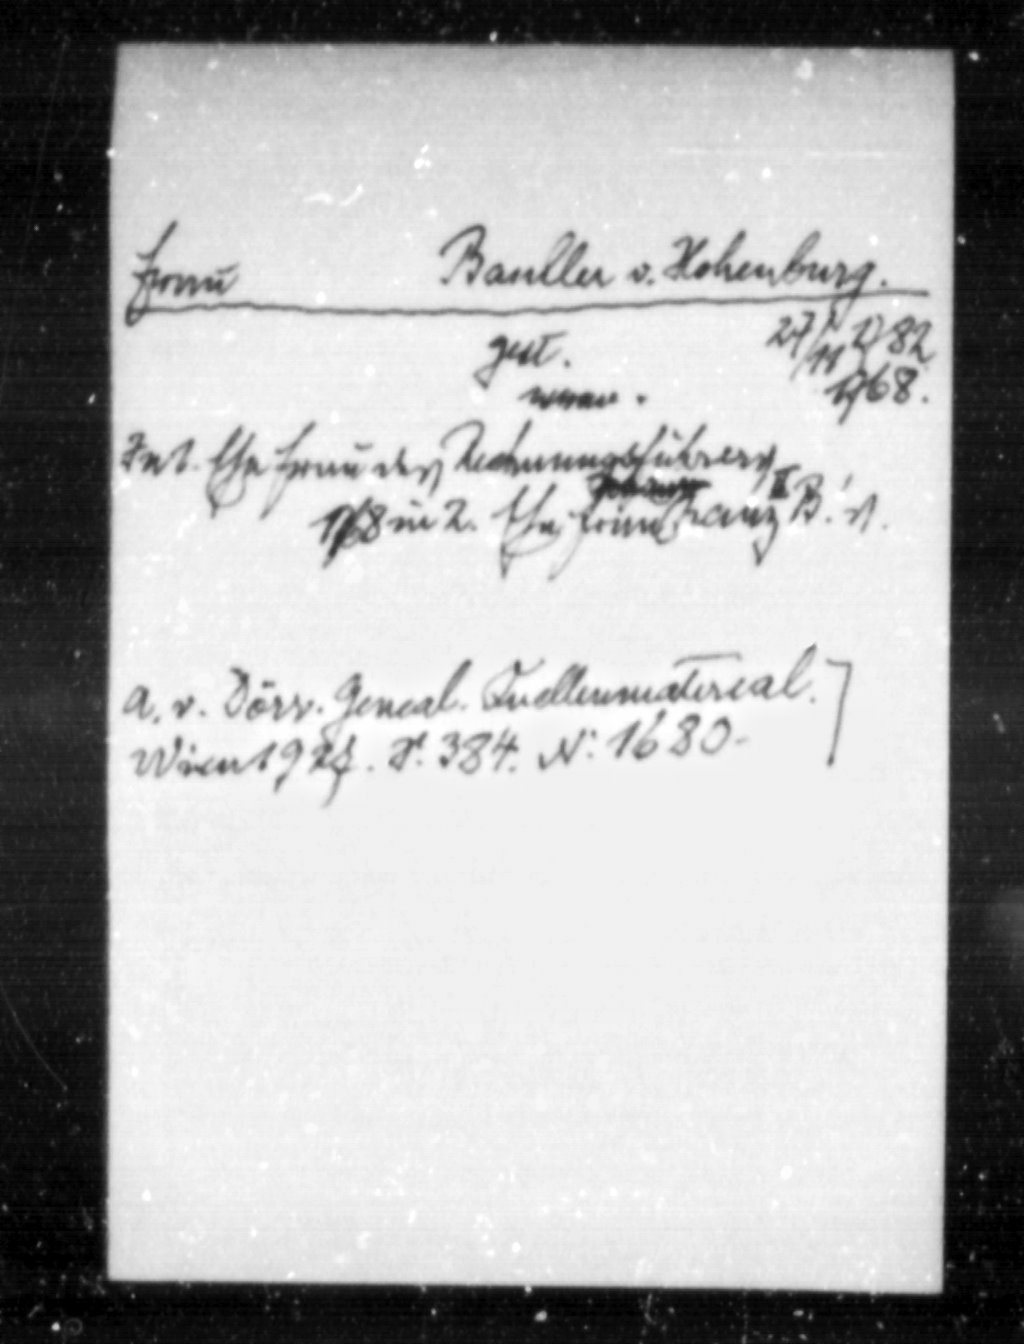 Frau Bauller v. Hohenburg.
gest. 27/11 1782
1768.
Ehefrau des Rechnungsführers
1768 in 2. Ehe Frau Franz II B.'s.
A. v. Dörr. Geneal. Quellenmaterial.
Wien 192 . S. 384. N: 1680-